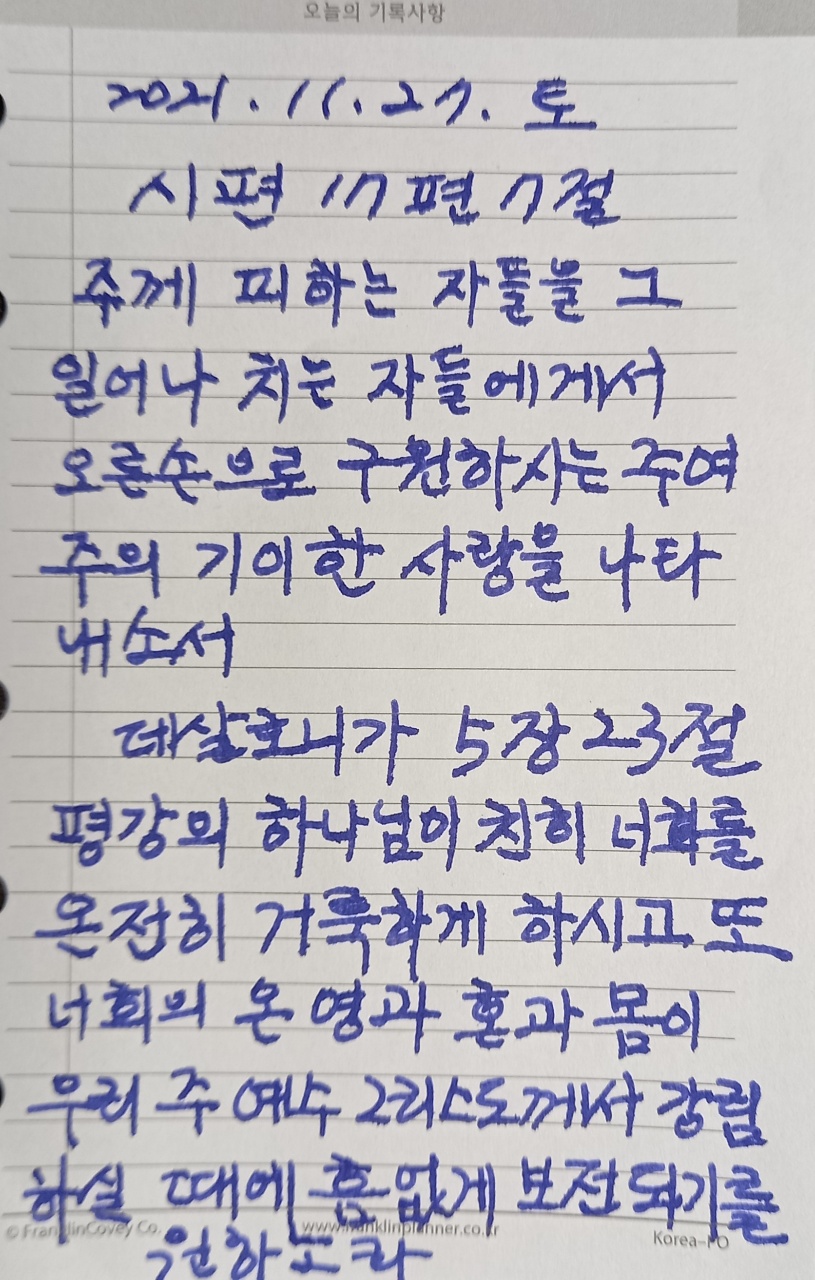 오늘의 기록사항
2021. 11. 27. 토
시편 17편 7절
주께 피하는 자들을 그
일어나 치는 자들에게서
오른손으로 구원하시는 주여
주의 기이한 사랑을 나타
내소서
데살로니가 5장 23절
평강의 하나님이 친히 너희를
온전히 거룩하게 하시고 또
너희의 온 영과 혼과 몸이
우리 주 예수 그리스도께서 강림
하실 때에 흠없게 보전되기를
© FranklinCovey Co. www.franklinplanner.co.kr Korea-PO
원하노라